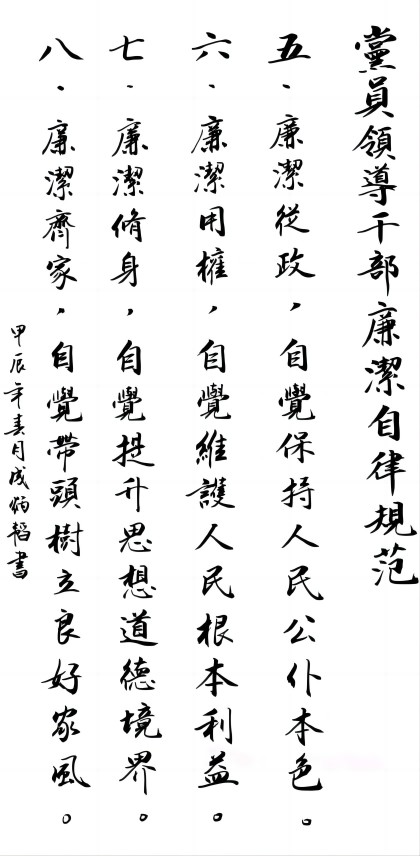 黨員領導干部廉潔自律規范
五、廉潔從政，自覺保持人民公仆本色。
六、廉潔用權，自覺維護人民根本利益。
七、廉潔脩身，自覺提升思想道德境界。
八、廉潔齊家，自覺帶頭樹立良好家風。
甲辰年春月成炳韜書